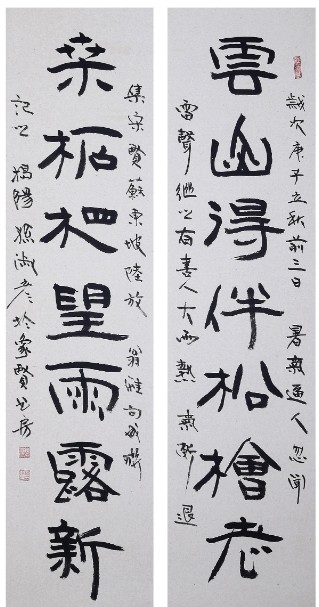 歲次庚子立秋前三日暑氣逼人忽聞
雲山得伴松檜老
雷聲繼以有喜人大雨熱氣漸退
集宋賢蘇東坡陸放翁雄句成聯
桑柘相望雨露新
記之揭陽孫淑彥於象賢書房